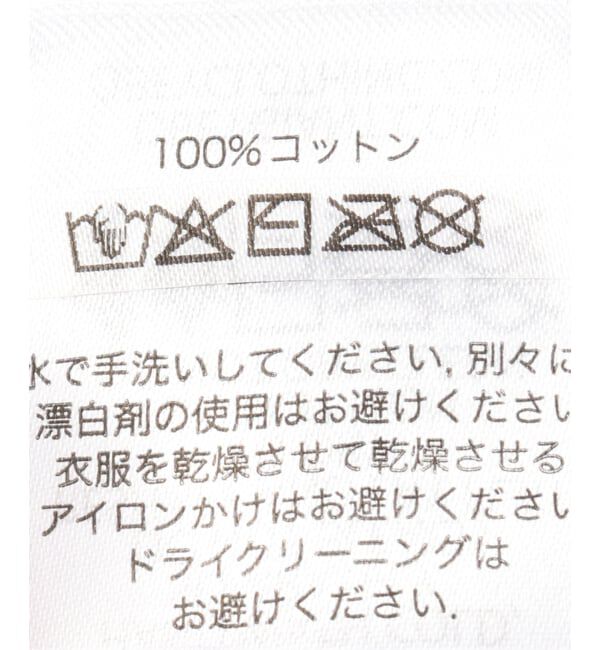 100%コットン
水で手洗いしてください, 別々に
漂白剤の使用はお避けください
衣服を乾燥させて乾燥させる
アイロンかけはお避けください
ドライクリーニングは
お避けください.